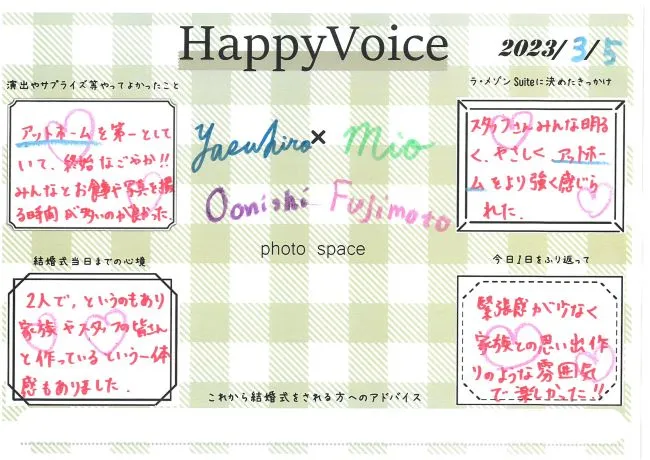 HappyVoice
2023/3/5
演出やサプライズ等やってよかったこと
アットホームを第一として
いて、終始なごやか!!
みんなとお食事や写真を撮
る時間が多いのが良かった。
ラ・メゾン Suiteに決めたきっかけ
スタッフさんみんな明る
く、やさしくアットホー
ムをより強く感じら
れた。
Yasuhiro × Mio
Oonishi Fujimoto
photo space
結婚式当日までの心境
2人で、というのもあり
家族やスタッフの皆さん
と作っているという一体
感もありました。
今日1日をふり返って
緊張感が少なく
家族との思い出作
りのような雰囲気
で楽しかった!!
これから結婚式をされる方へのアドバイス